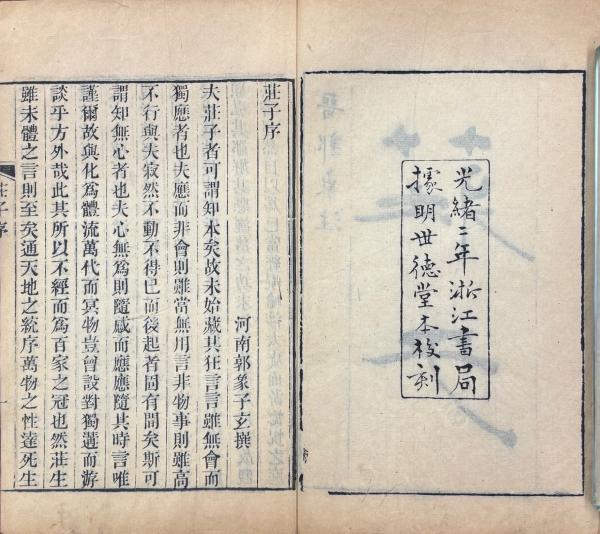 光緒二年浙江書局
據明世德堂本校刻
莊子序
河南郭象子玄撰
夫莊子者可謂知本矣故未始藏其狂言言雖無會而
獨應者也夫應而非會則雖當無用言非物事則雖高
不行與夫寂然不動不得已而後起者固有間矣斯可
謂知無心者也夫心無爲則隨感而應應隨其時言唯
謹爾故與化爲體流萬代而冥物豈曾設對獨遘而游
談乎方外哉此其所以不經而爲百家之冠也然莊生
雖未體之言則至矣通天地之統序萬物之性達死生
莊子序
一